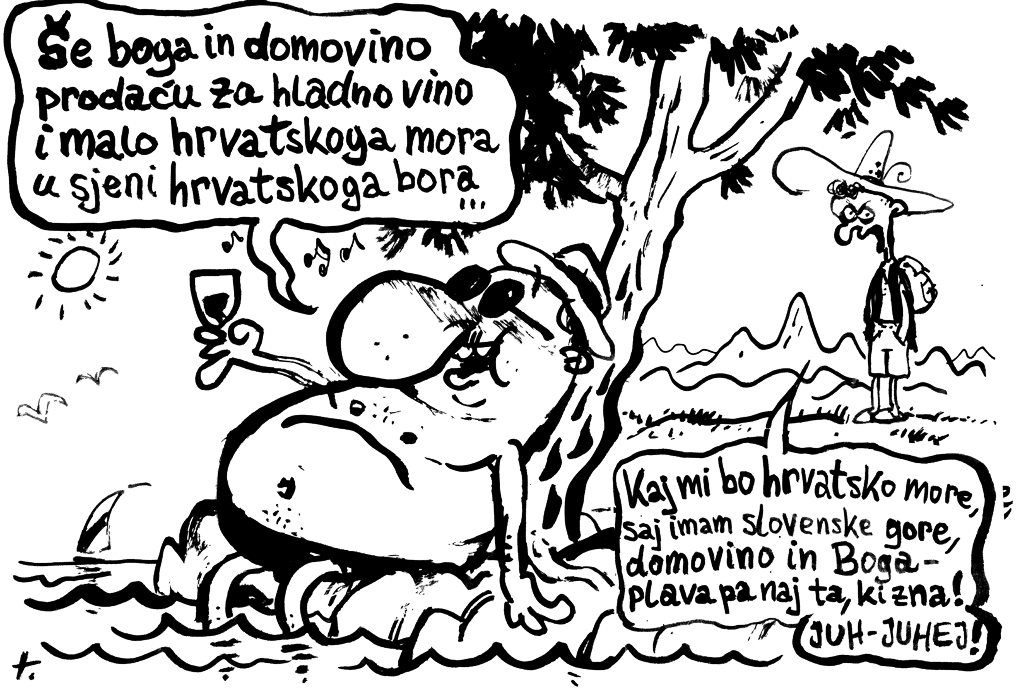 Še boga in domovino
prodaću za hladno vino
i malo hrvatskoga mora
u sjeni hrvatskoga bora...
Kaj mi bo hrvatsko more,
saj imam slovenske gore,
domovino in Boga-
plava pa naj ta, ki zna!
JUH-JUHEJ!
t.